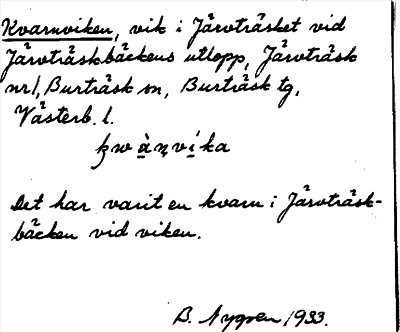 Kvarnviken, vik i Järvträsket vid
Järvträskbäckens utlopp, Järvträsk
nr 1, Burträsk sn, Burträsk tg,
Västerb. l.
kwànvíka
Det har varit en kvarn i Järvträsk-
bäcken vid viken.
B. Nygren 1933.